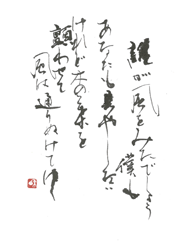 誰が風をみたでしょう
僕も
あなたも見やしない
けれど木の葉を
顫わせて
風は通りぬけてゆく